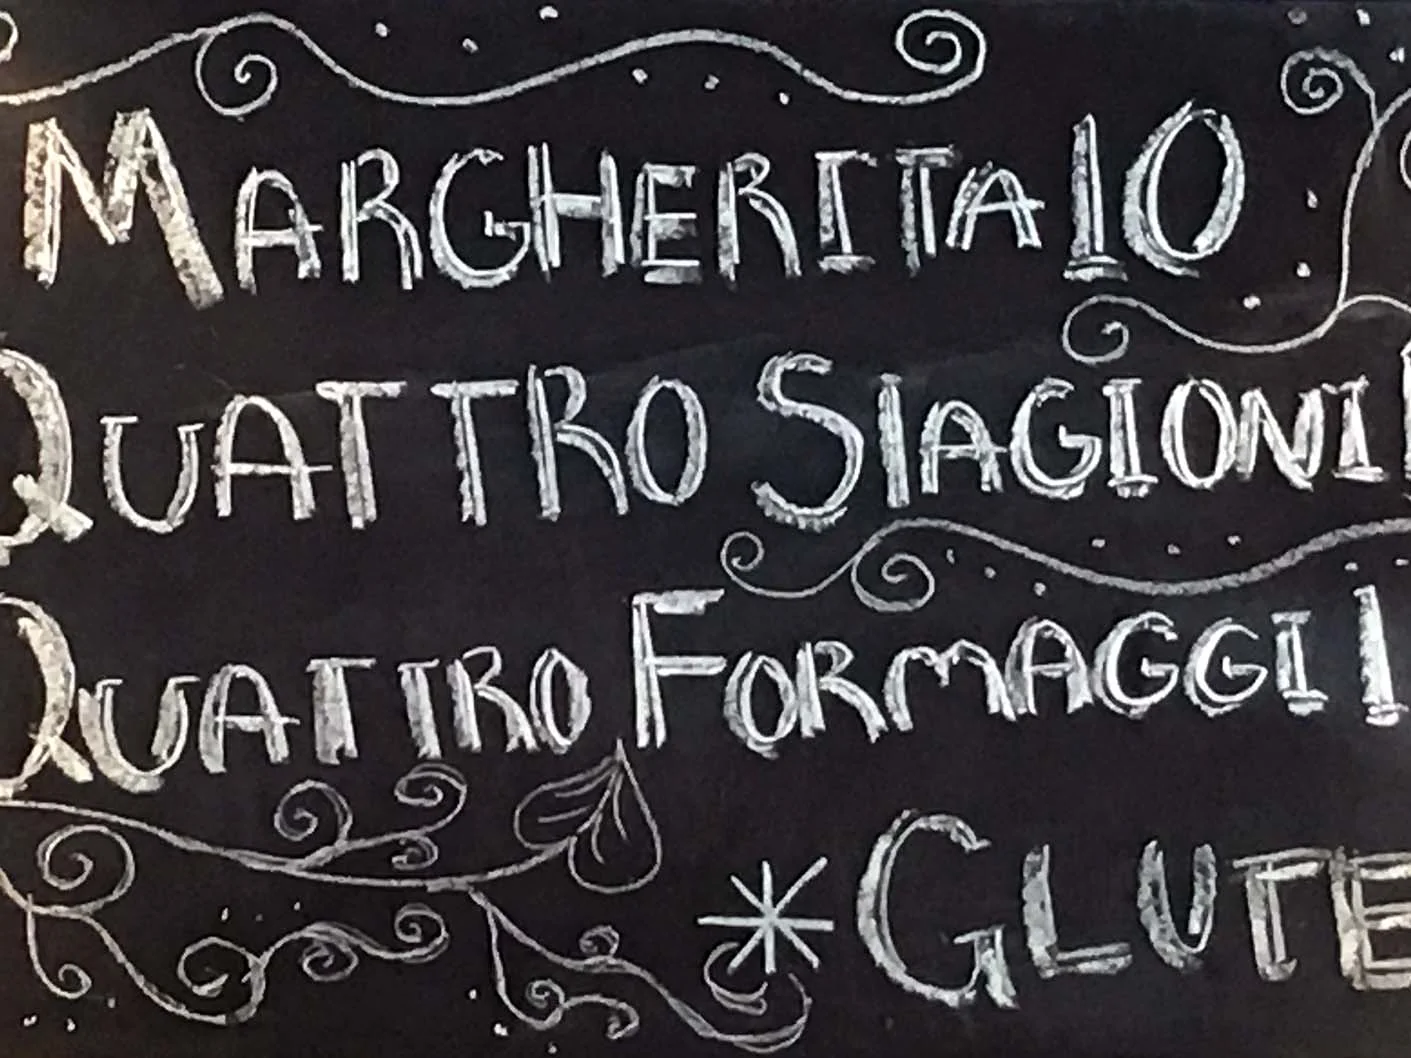 MARGHERITA 10
QUATTRO SIAGIONI
QUATTRO FORMAGGI 1
* GLUTE